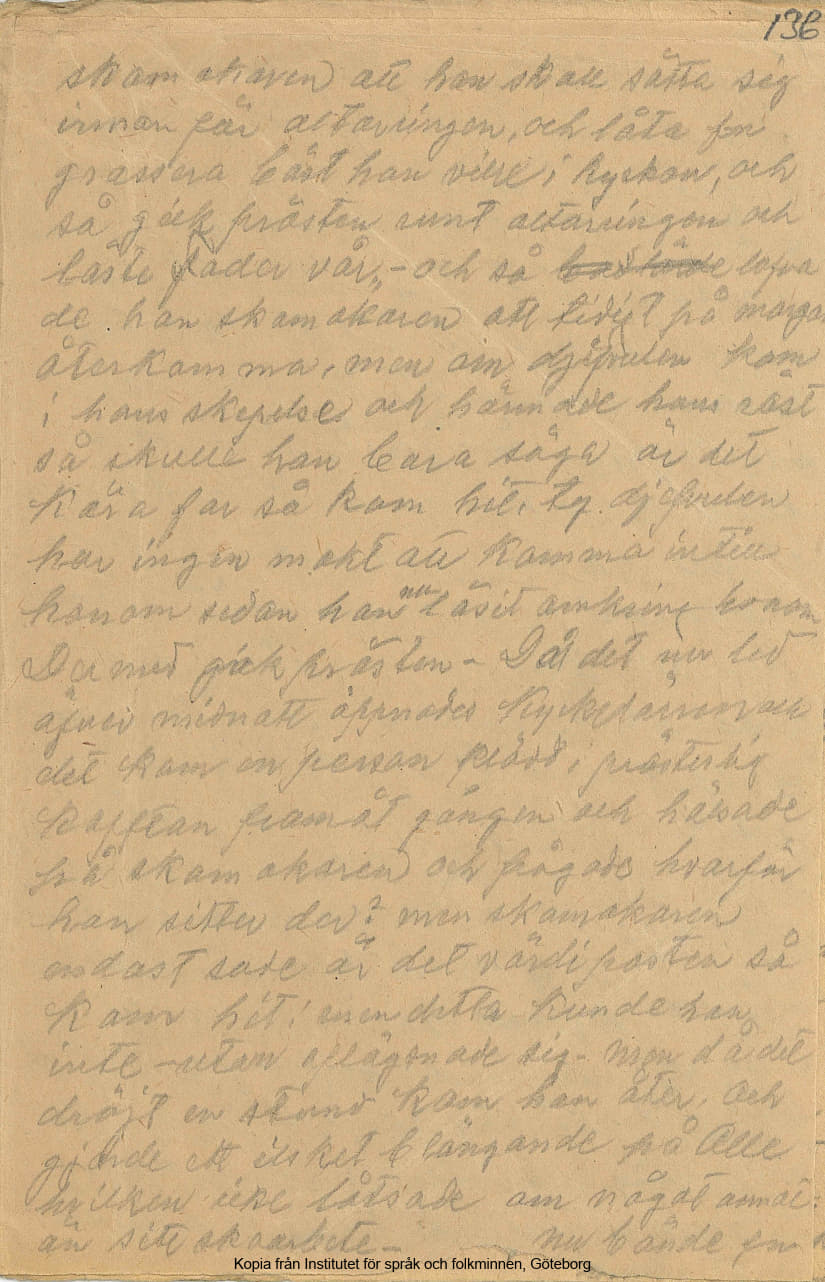 136
skomakaren att han skall sätta sig
innan för altarringen, och låta fan
grassera bäst han ville i kyrkan, och
så gick prästen runt altarringen och
läste fader vår„ – och så lofva
de han skomakaren att tidigt på morgon
återkomma, men om djefvulen kom
i hans skepelse och härmade hans röst
så skulle han bara säga är det
Kära far så kom hit, ty djefvulen
har ingen makt att komma intill
honom sedan han nu läsit omkring honom
Der med gick prästen – Då det nu led
äfver midnatt öppnades Kyrkdörren och
det kom en person klädd i prästerlig
kaftan framåt gången och hälsade
på skomakaren och frågade hvarför
han sitter der? men skomakaren
endast sade är det värdi pasten så
kom hit! men detta kunde han
inte – utan aflägsnade sig – men då det
dröjt en stund kom han åter, och
gjorde ett ilsket blängande på Olle
hvilken icke låtsade om något annat
än sitt skoarbete – nu bände fan
Kopia från Institutet för språk och folkminnen, Göteborg